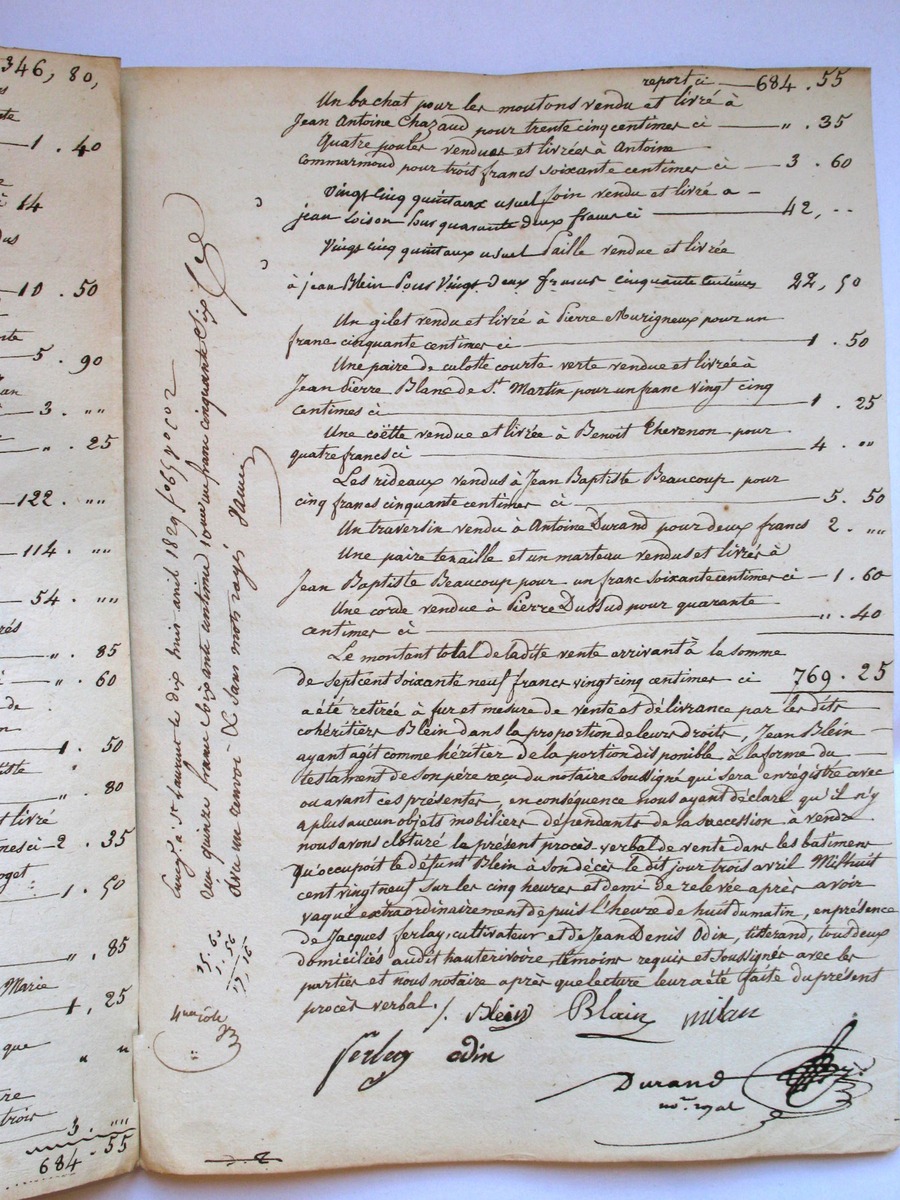 346, 80,
1 . 40
14
10 . 50
5 . 90
3 . ""
" . 25
122 . ""
114 . ""
54 . ""
" . 85
" . 60
de
1 . 50
" . 80
et livré
2 . 35
1 . 50
" . 85
Marie
1 , 25
que
" "
trois
3 . ""
684 . 55
report ci — 684 . 55
Un bachat pour les moutons vendu et livré à
Jean Antoine Chazaud pour trente cinq centimes ci — " . 35
Quatre poules vendues et livrées à Antoine
Commarmond pour trois francs soixante centimes ci — 3 . 60
Vingt cinq quintaux usuel foin vendu et livré a –
jean loison pour quarante deux francs ci — 42, . .
Vingt cinq quintaux usuel paille vendue et livrée
à jean Blein pour Vingt deux francs cinquante centimes 22, 50
Un gilet vendu et livré à Pierre Murigneux pour un
franc cinquante centimes ci — 1 . 50
Une paire de culotte courte verte vendue et livrée à
Jean pierre Blanc de St. Martin pour un franc vingt cinq
centimes ci — 1 . 25
Une coëtte vendue et livrée à Benoit Thevenon pour
quatre francs ci — 4 . ""
Les rideaux vendus à Jean Baptiste Beaucoup pour
cinq francs cinquante centimes ci — 5 . 50
Un traversin vendu à Antoine Durand pour deux francs 2 . ""
Une paire tenaille et un marteau vendus et livrés à
Jean Baptiste Beaucoup pour un franc soixante centimes ci — 1 . 60
Une corde vendue à Pierre Dussud pour quarante
centimes ci — " . 40
Le montant total de ladite vente arrivant à la somme
de sept cent soixante neuf francs vingt cinq centimes ci 769 . 25
a été retirée à fur et mesure de vente et délivrance par les dits
cohéritiers Blein dans la proportion de leurs droits, Jean Blein
ayant agit comme héritier de la portion disponible à la forme du
testament de son père reçu du notaire soussigné qui sera enrégistré avec
ou avant ces présentes, en conséquence nous ayant déclaré qu'il n'y
a plus aucun objets mobiliers dépendants de la succession à vendre
nous avons cloturé le présent procès verbal de vente dans les batimens
qu'occupoit le défunt Blein à son décès le dit jour trois avril Mil huit
cent vingt neuf sur les cinq heures et demi de relevée après avoir
vaqué extraordinairement depuis l'heure de huit du matin, en présence
de Jacques ferlay, cultivateur et de Jean Denis Odin, titterand, tous deux
domiciliés audit hauterivoire, témoins requis et soussignés avec les
parties et nous notaire après que lecture leur a été faite du présent
procès verbal. /. Blein Blain milan
ferlay odin
Durand
nore. royal
Enregé. à St Laurent le dix huit avril 1829 fo 69
quinze francs soixante centimes pour un franc cinquante six
un renvoi – & sans mots rayés
15. 60
1. 56
17, 16
4 rôle